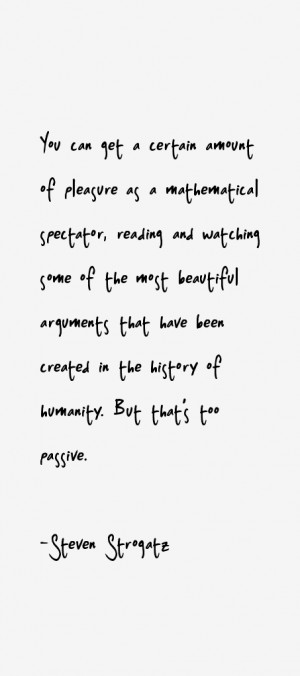 You can get a certain amount
of pleasure as a mathematical
spectator, reading and watching
some of the most beautiful
arguments that have been
created in the history of
humanity. But that's too
passive.
-Steven Strogatz